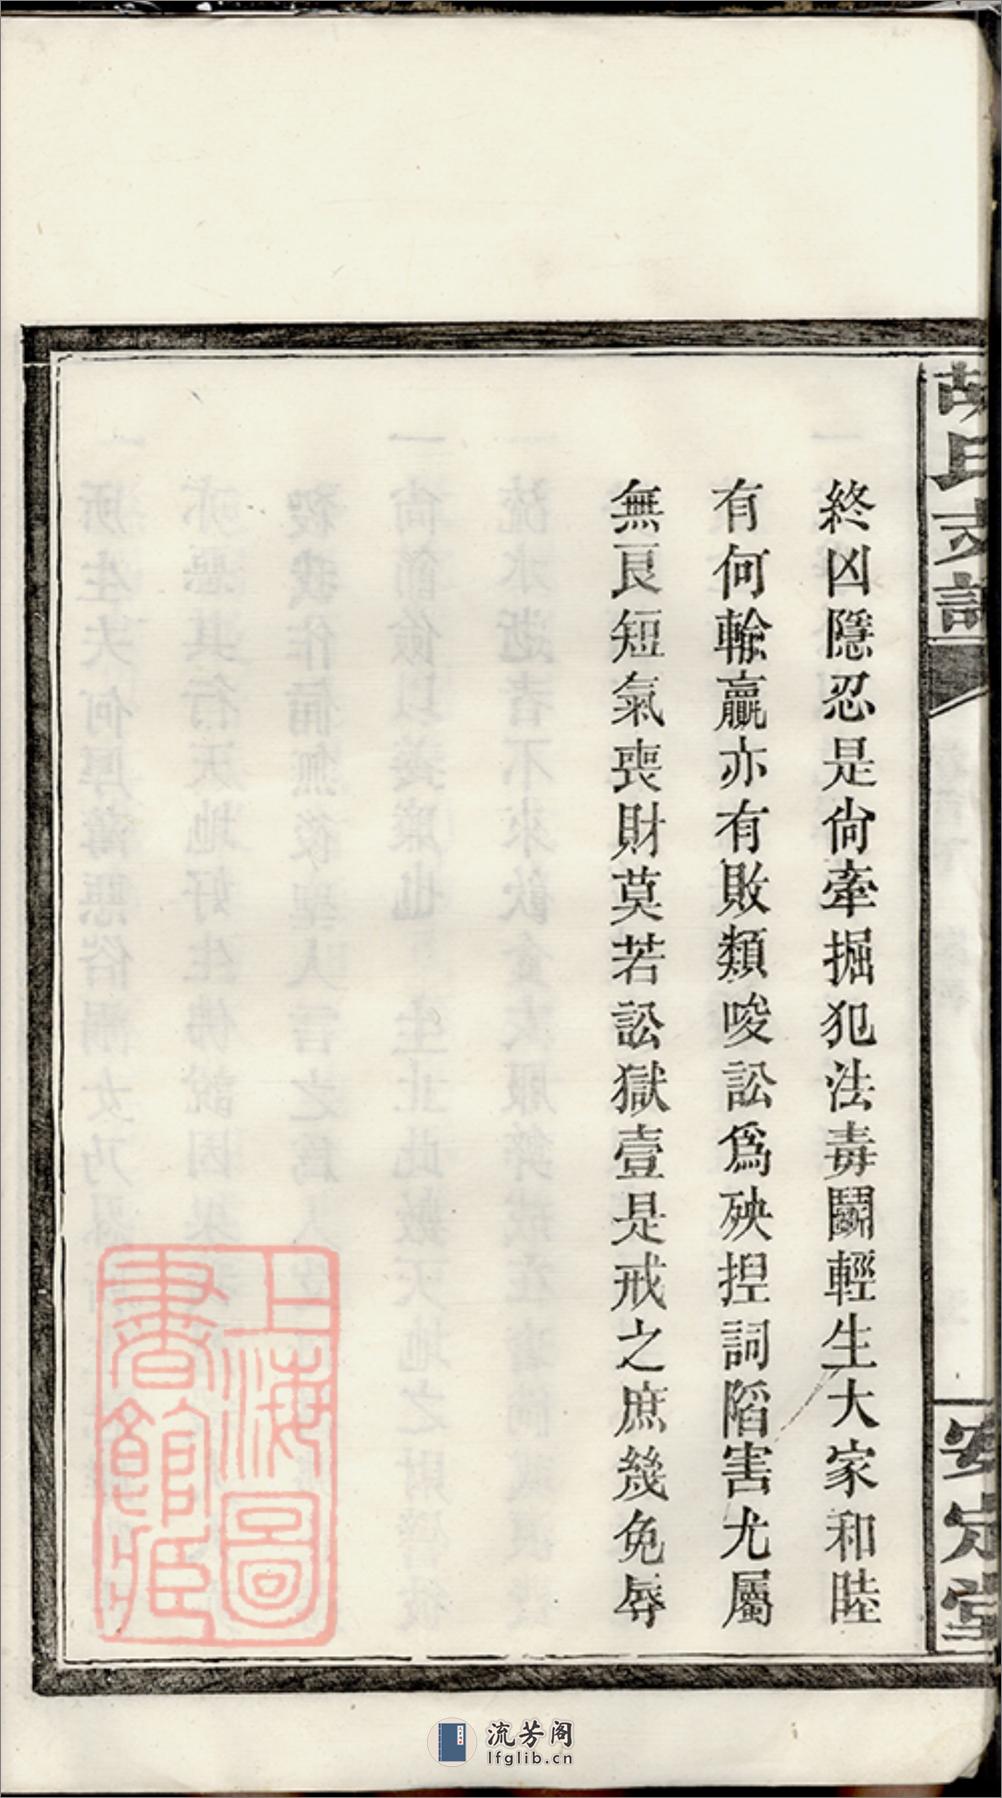 胡氏支譜
安定堂
終凶隱忍是尙牽掘犯法毒鬭輕生大家和睦
有何輸贏亦有敗類唆訟爲殃揑詞陷害尤屬
無良短氣喪財莫若訟獄壹是戒之庶幾免辱
上海圖
書館藏
流芳阁
lfglib.cn